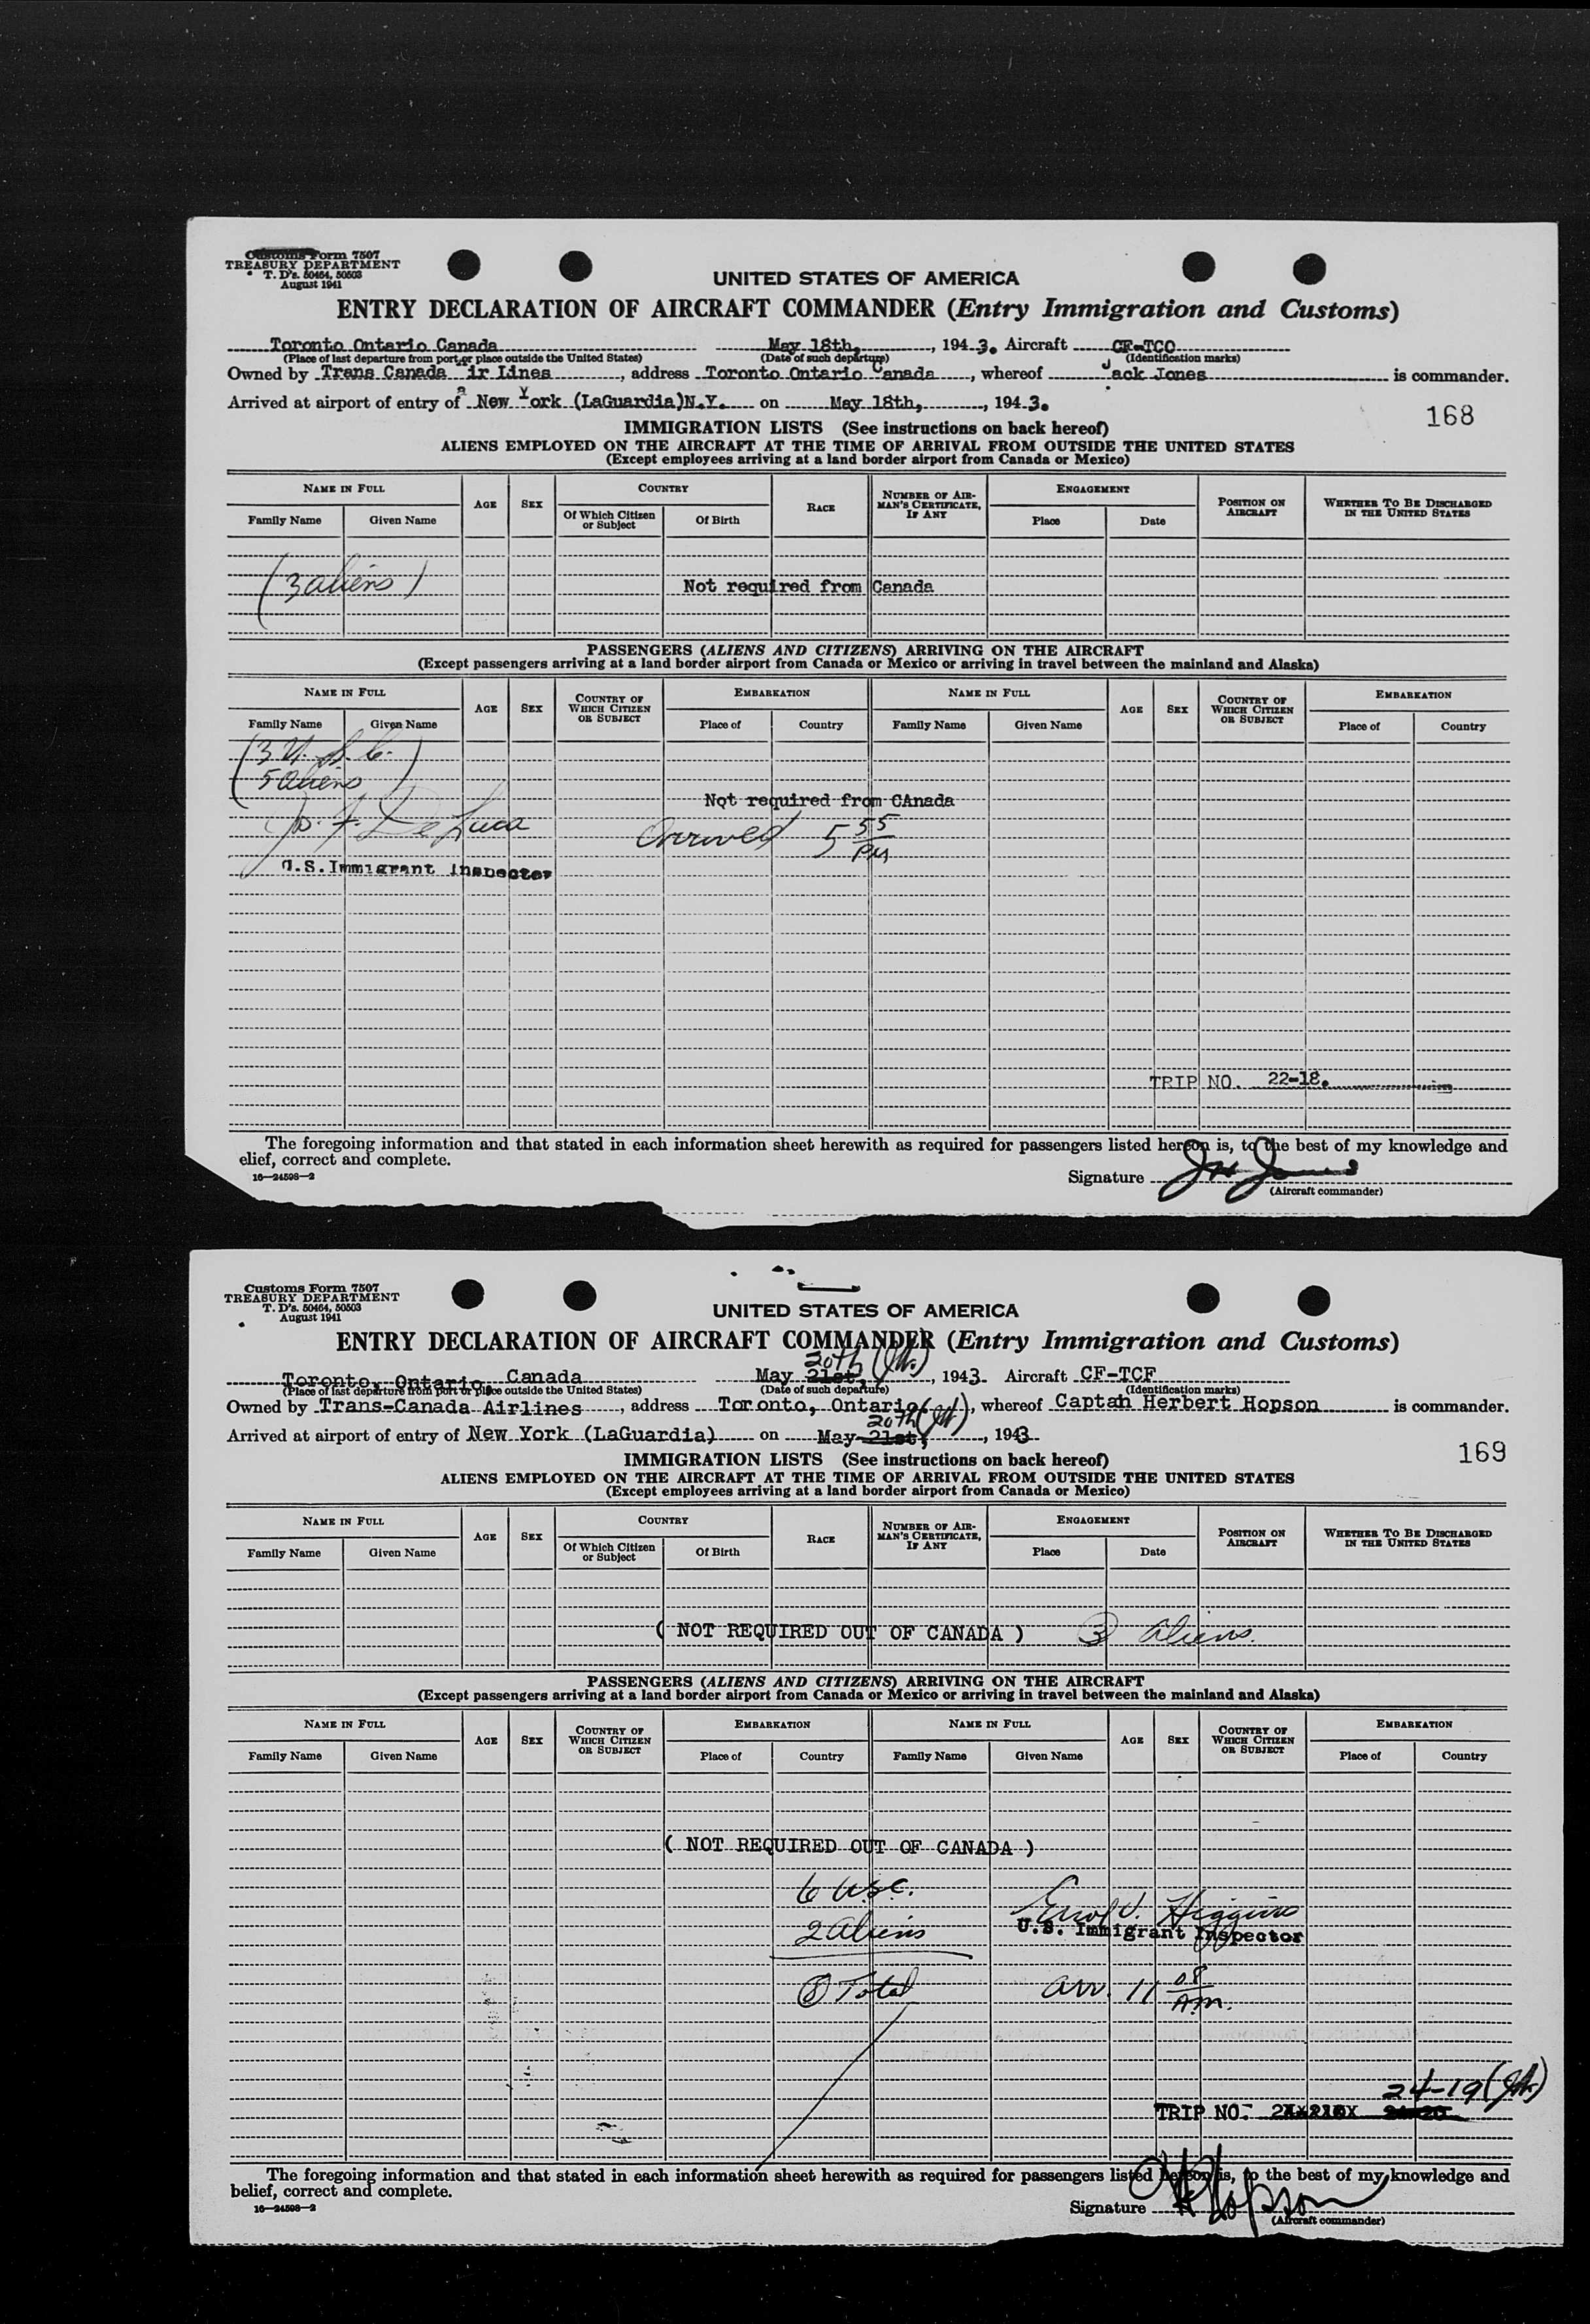 Customs Form 7507
TREASURY DEPARTMENT
T. D's. 50464, 50503
August 1941
UNITED STATES OF AMERICA
ENTRY DECLARATION OF AIRCRAFT COMMANDER (Entry Immigration and Customs)
Toronto Ontario Canada May 18th, , 194 3. Aircraft CF-TCO
(Place of last departure from port or place outside the United States) (Date of such departure) (Identification marks)
Owned by Trans Canada Air Lines , address Toronto Ontario Canada , whereof Jack Jones is commander.
Arrived at airport of entry of New York (LaGuardia)N.Y. on May 18th, , 194 3.
168
IMMIGRATION LISTS (See instructions on back hereof)
ALIENS EMPLOYED ON THE AIRCRAFT AT THE TIME OF ARRIVAL FROM OUTSIDE THE UNITED STATES
(Except employees arriving at a land border airport from Canada or Mexico)
NAME IN FULL AGE SEX COUNTRY RACE NUMBER OF AIRMAN'S CERTIFICATE, IF ANY ENGAGEMENT POSITION ON AIRCRAFT WHETHER TO BE DISCHARGED IN THE UNITED STATES
Family Name Given Name Of Which Citizen or Subject Of Birth Place Date
(3 aliens) Not required from Canada
PASSENGERS (ALIENS AND CITIZENS) ARRIVING ON THE AIRCRAFT
(Except passengers arriving at a land border airport from Canada or Mexico or arriving in travel between the mainland and Alaska)
NAME IN FULL AGE SEX COUNTRY OF WHICH CITIZEN OR SUBJECT EMBARKATION NAME IN FULL AGE SEX COUNTRY OF WHICH CITIZEN OR SUBJECT EMBARKATION
Family Name Given Name Place of Country Family Name Given Name Place of Country
(3 U. S. C.
5 aliens)
Not required from CAnada
Jo. F. De Luca Arrived 5 55 PM
U.S. Immigrant Inspector
TRIP NO. 22-18.
The foregoing information and that stated in each information sheet herewith as required for passengers listed hereon is, to the best of my knowledge and
elief, correct and complete.
16—24598—2
Signature
(Aircraft commander)
Customs Form 7507
TREASURY DEPARTMENT
T. D's. 50464, 50503
August 1941
UNITED STATES OF AMERICA
ENTRY DECLARATION OF AIRCRAFT COMMANDER (Entry Immigration and Customs)
20th
Toronto, Ontario Canada May 21st, , 1943. Aircraft CF-TCF
(Place of last departure from port or place outside the United States) (Date of such departure) (Identification marks)
Owned by Trans-Canada Airlines , address Toronto, Ontario , whereof Captan Herbert Hopson is commander.
20th
Arrived at airport of entry of New York (LaGuardia) on May 21st, , 1943
169
IMMIGRATION LISTS (See instructions on back hereof)
ALIENS EMPLOYED ON THE AIRCRAFT AT THE TIME OF ARRIVAL FROM OUTSIDE THE UNITED STATES
(Except employees arriving at a land border airport from Canada or Mexico)
NAME IN FULL AGE SEX COUNTRY RACE NUMBER OF AIRMAN'S CERTIFICATE, IF ANY ENGAGEMENT POSITION ON AIRCRAFT WHETHER TO BE DISCHARGED IN THE UNITED STATES
Family Name Given Name Of Which Citizen or Subject Of Birth Place Date
( NOT REQUIRED OUT OF CANADA ) 3 aliens.
PASSENGERS (ALIENS AND CITIZENS) ARRIVING ON THE AIRCRAFT
(Except passengers arriving at a land border airport from Canada or Mexico or arriving in travel between the mainland and Alaska)
NAME IN FULL AGE SEX COUNTRY OF WHICH CITIZEN OR SUBJECT EMBARKATION NAME IN FULL AGE SEX COUNTRY OF WHICH CITIZEN OR SUBJECT EMBARKATION
Family Name Given Name Place of Country Family Name Given Name Place of Country
( NOT REQUIRED OUT OF CANADA )
6 USC.
2 aliens Errol V. Higgins
U.S. Immigrant Inspector
8 Total arr. 11 08 AM.
24-19
TRIP NO.
The foregoing information and that stated in each information sheet herewith as required for passengers listed hereon is, to the best of my knowledge and
belief, correct and complete.
16—24598—2
Signature H Hopson
(Aircraft commander)